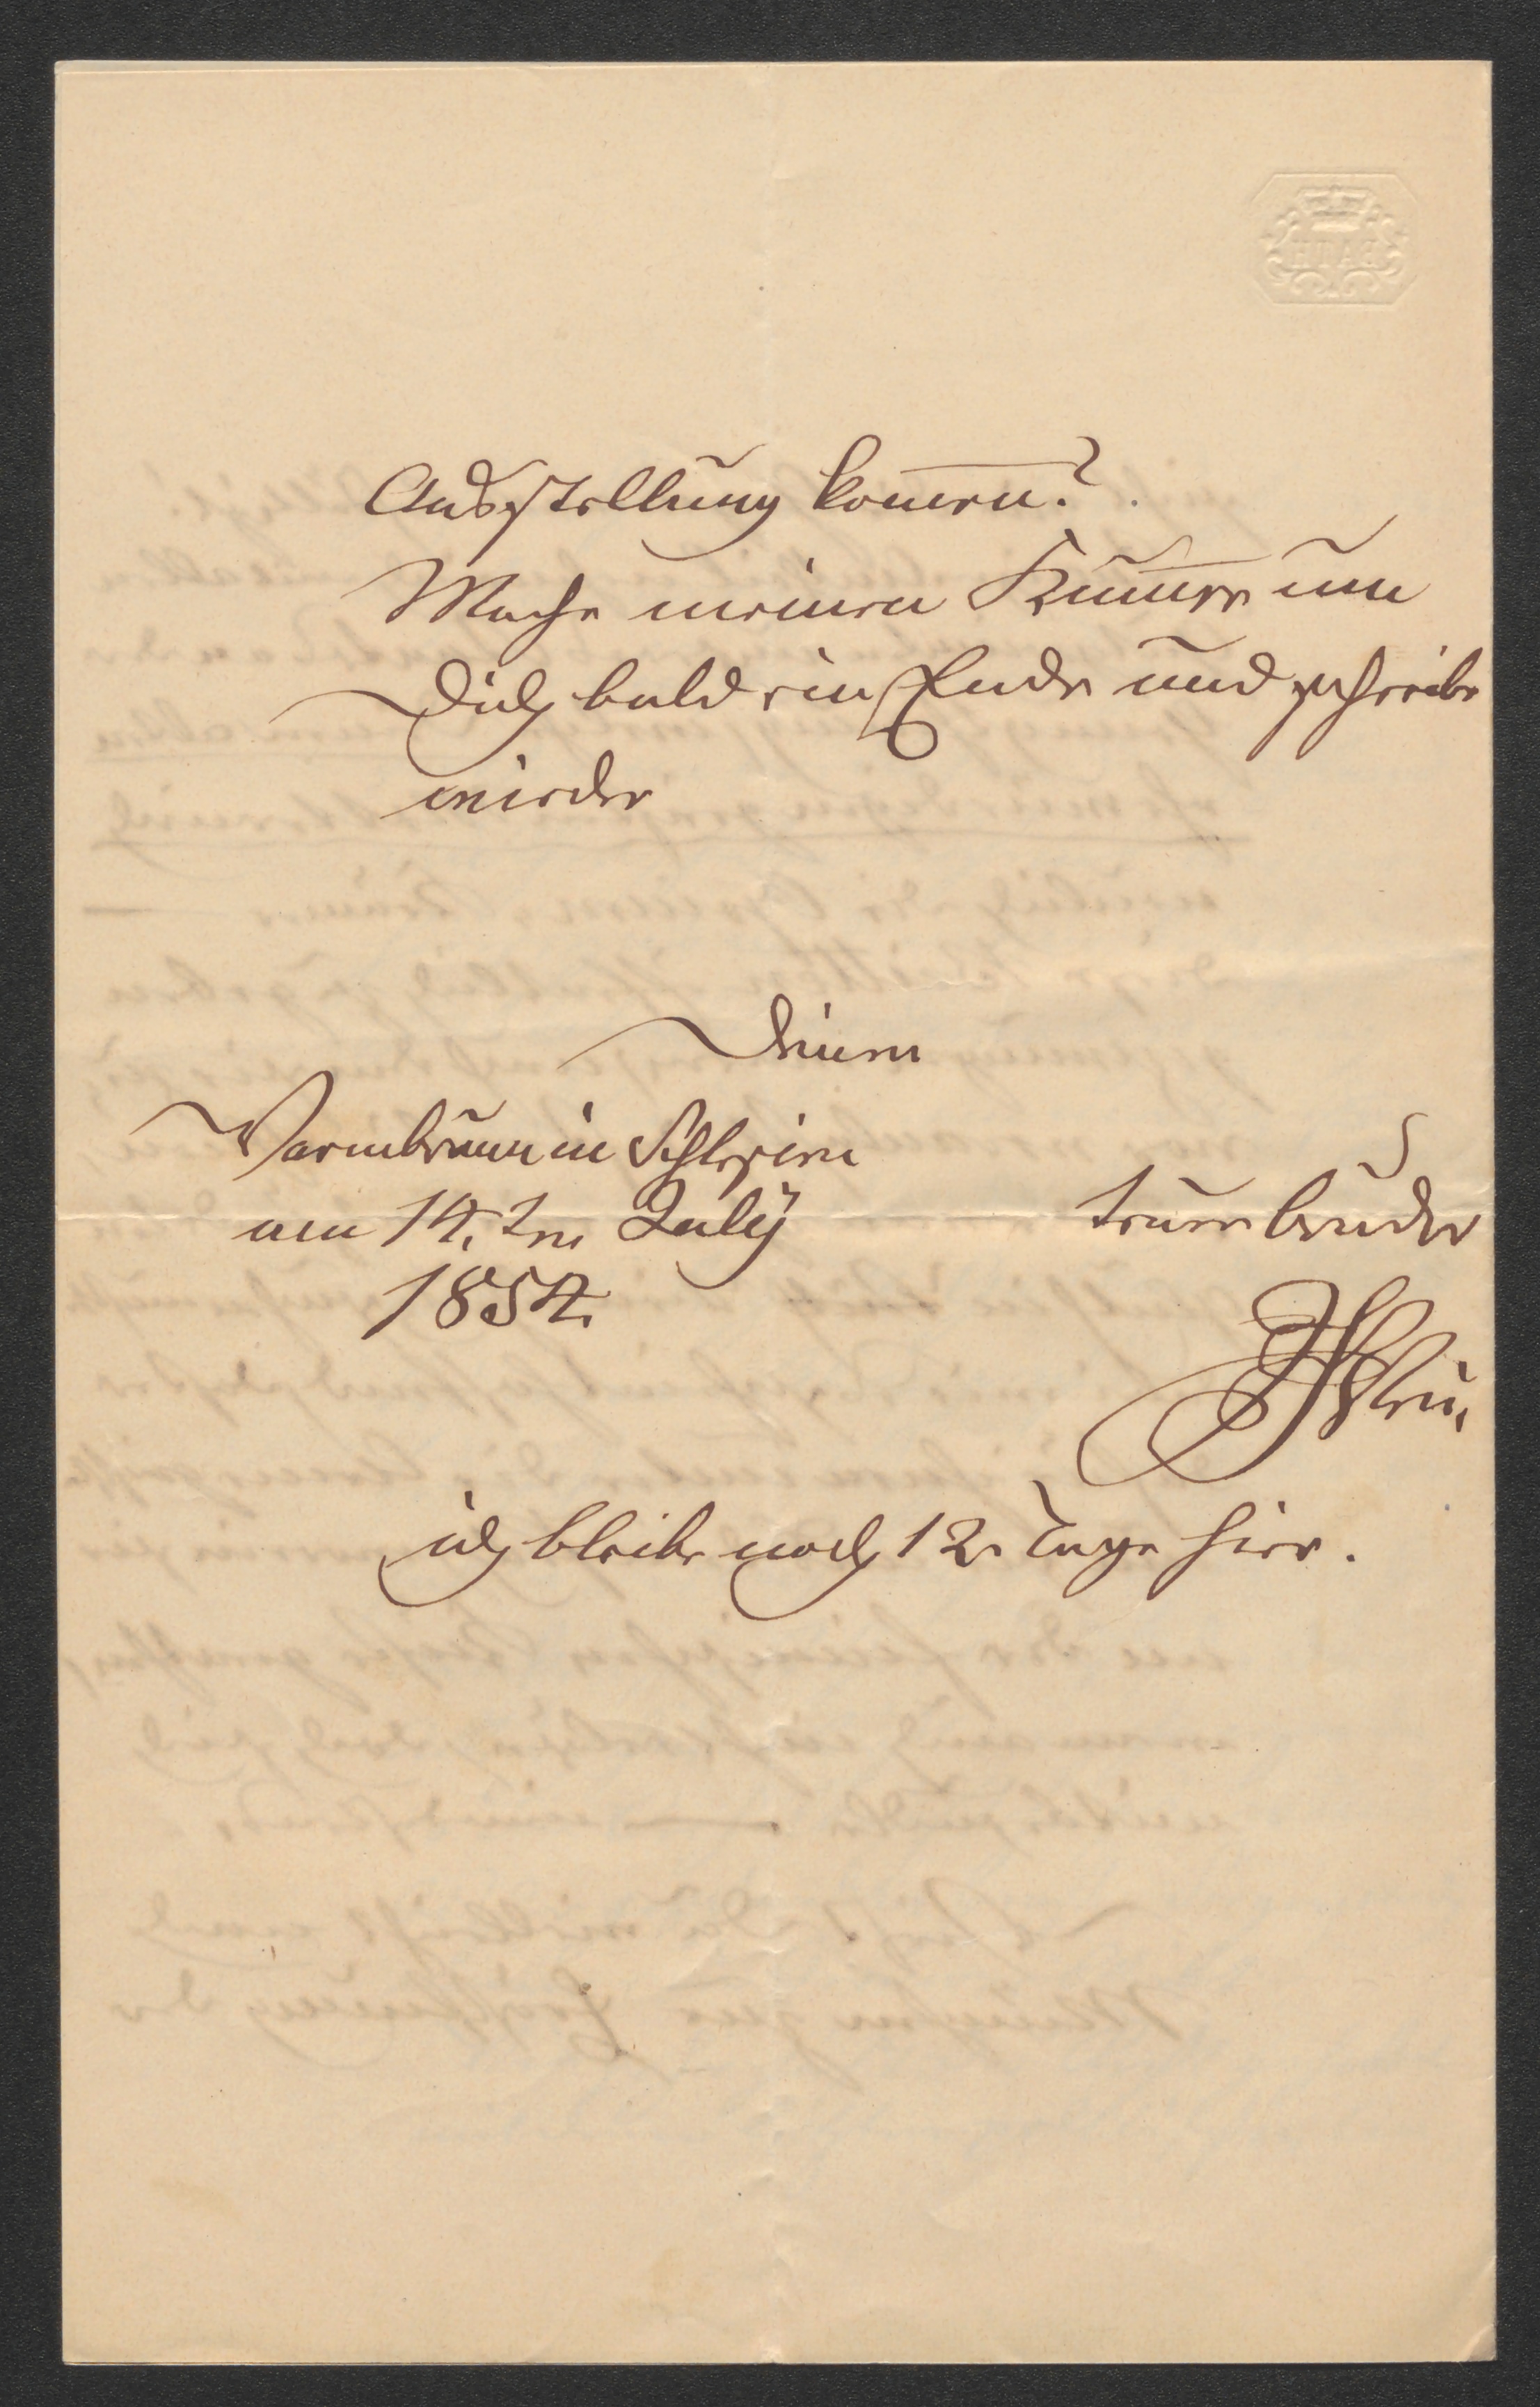 BATH
Ausstellung kom̅en?
Mache meinen Kum̅er um
Dich bald ein Ende und schreibe
wieder
Deinem
Warmbrunn in Schlesien
am 14. ten July
1854.
treuen Bruder
ich bleibe noch 12 Tage hier.